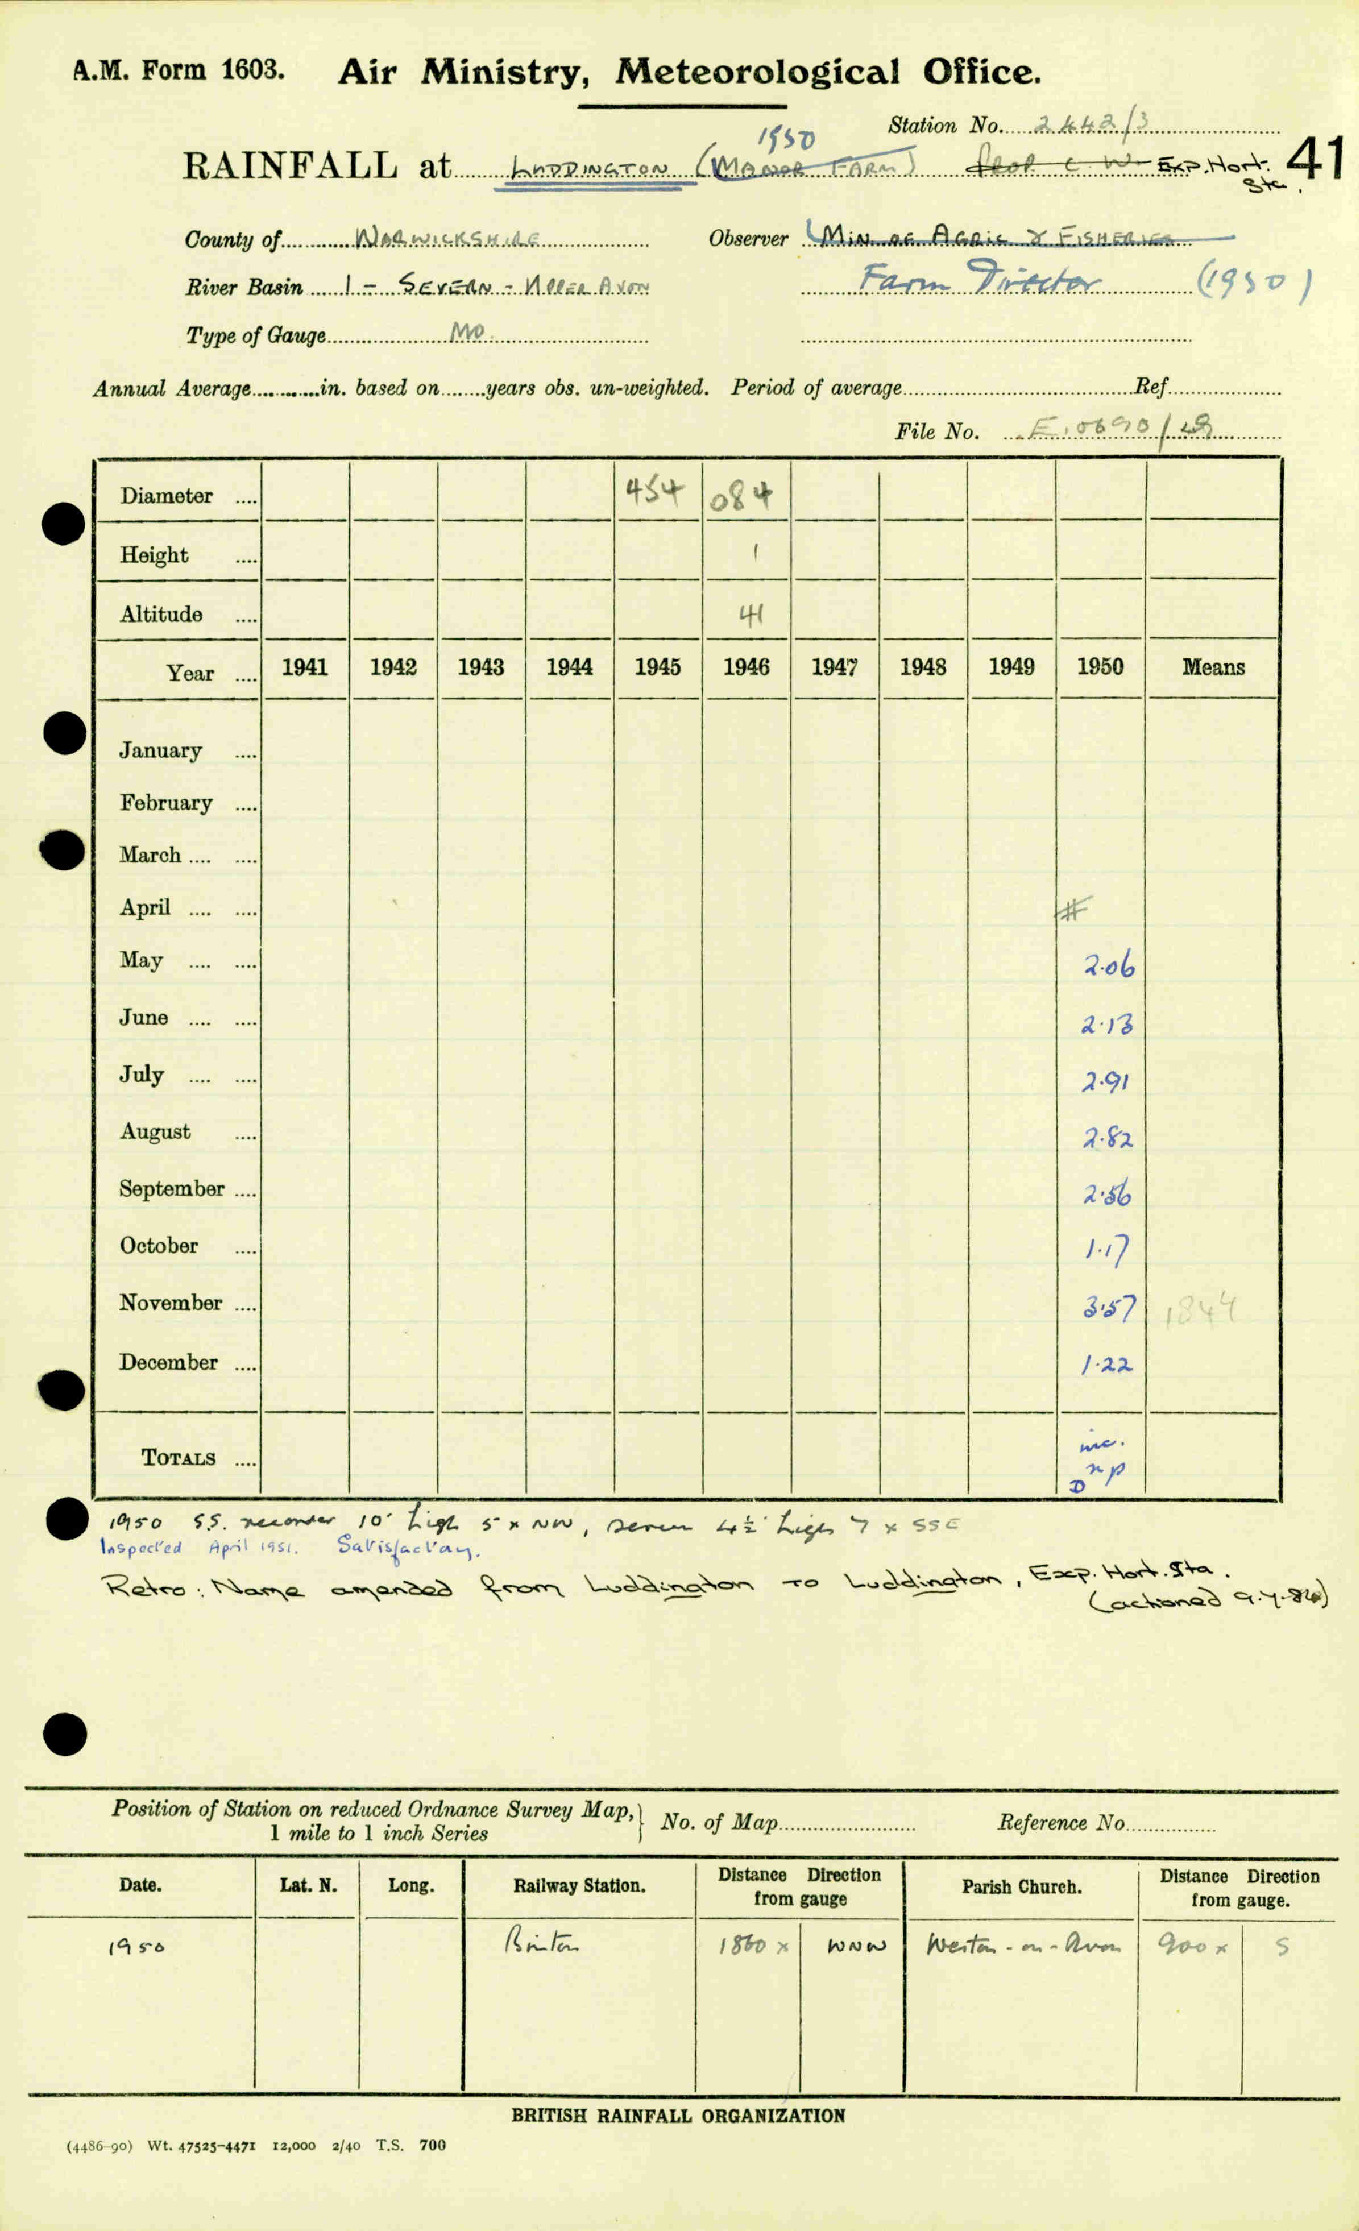 A.M. Form 1603. Air Ministry, Meteorological Office.
Station No. 2442/3
1950
RAINFALL at LUDDINGTON (MANOR FARM) PROP C W Exp. Hort. Sta. 41
County of WARWICKSHIRE Observer MIN OF AGRIC & FISHERIES
River Basin 1 - SEVERN - UPPER AVON Farm Director (1950)
Type of Gauge MO
Annual Average in. based on years obs. un-weighted. Period of average Ref.
File No. E.0690/48
Diameter 454 084
Height 1
Altitude 41
Year 1941 1942 1943 1944 1945 1946 1947 1948 1949 1950 Means
January
February
March
April #
May 2.06
June 2.13
July 2.91
August 2.82
September 2.56
October 1.17
November 3.57 1844
December 1.22
TOTALS inc.
D np
1950 S.S. recorder 10' high 5 x NW, screen 4½' high 7 x SSE
Inspected April 1951. Satisfactory.
Retro: Name amended from Luddington to Luddington, Exp. Hort. Sta.
(actioned 9.7.84)
Position of Station on reduced Ordnance Survey Map, No. of Map Reference No.
1 mile to 1 inch Series
Date. Lat. N. Long. Railway Station. Distance Direction from gauge Parish Church. Distance Direction from gauge.
1950 Binton 1860 x WNW Weston-on-Avon 900 x S
BRITISH RAINFALL ORGANIZATION
(4486-90) Wt. 47525-4471 12,000 2/40 T.S. 700